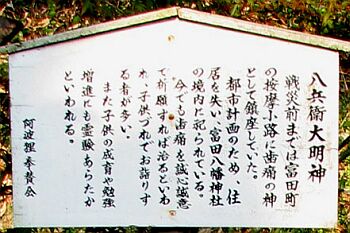 八兵衛大明神
戦災前までは富田町
の按摩小路に歯痛の神
として鎮座していた。
都市計画のため、住
居を失い、富田八幡神社
の境内に祀られている。
今でも歯痛を誠心誠意
で祈願すれば治るといわ
れ、子供づれでお詣りす
る者が多い。
また子供の成育や勉強
増進にも霊験あらたか
といわれる。
阿波狸奉賛会